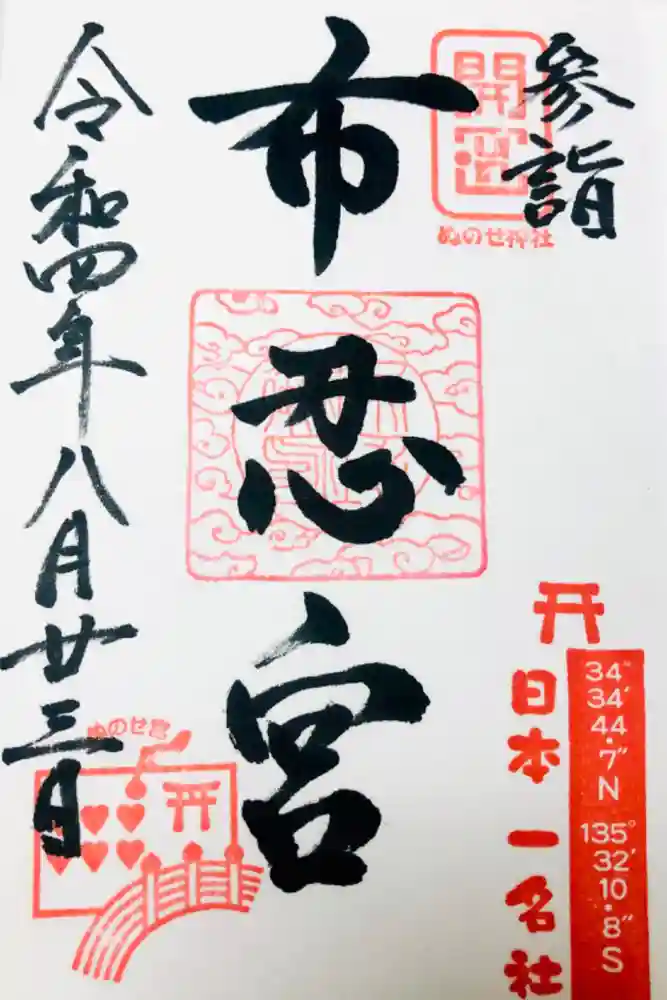 参詣
開運
ぬのせ神社
市忍宮
令和四年八月廿三日
ぬのせ宮
日本一名社
34°
34′
44.7″
N
135°
32′
10.8″
S